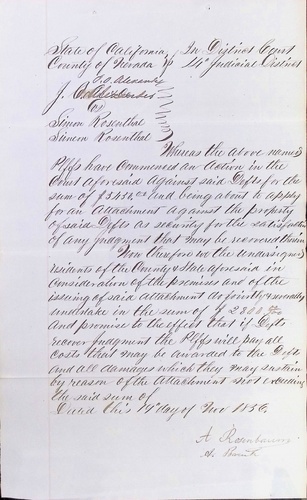 State of California, In District Court
County of Nevada 14th Judicial District
J. O. Alexander
vs
Simon Rosenthal
Simon Rosenthal
Whereas the above named
Plffs have commenced an Action in the
Court aforesaid against said Defts for the
sum of and being about to apply
for an Attachment against the property
of said Defts as security for the satisfaction
of any judgment that may be recovered therein
Now therefore we the undersigned
residents of the County & State aforesaid in
Consideration of the premises and of the
issuing of said Attachment do jointly & severally
undertake in the sum of $
and promise to the effect that if Defts
recover judgment the Plffs will pay all
costs that may be awarded to the Defts
and all damages which they may sustain
by reason of the Attachment not exceeding
the said sum of
Dated this day of Nov 1856.
A Rosenbaum
A.